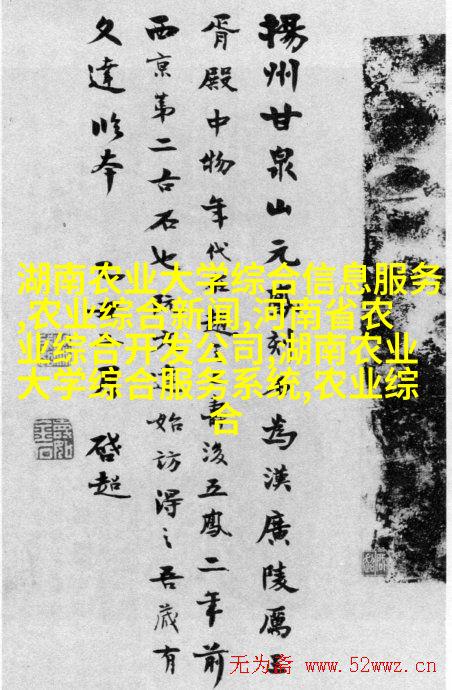 湖南农业大学综合信息服务
,农业综合新闻,河南省农
业综合开发公司,湖南农业
大学综合服务系统,农业综
合
揚州甘泉山元刻為漢廣陵厲王
胥殿中物年代後五鳳二年前
西京第二古石也始訪得之吾嵗有
達本啓超
无为斋 www.52wwz.cn